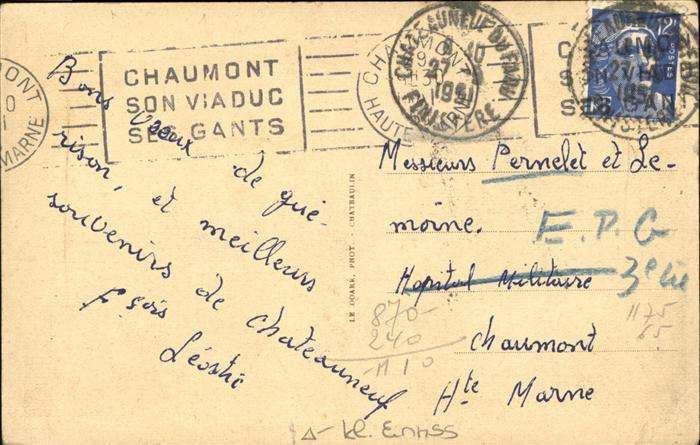 CHAUMONT
SON VIADUC
SES GANTS
CHATEAUNEUF DU FAOU
FINISTERE
HAUTE MARNE
Bons vœux de gué-
rison, et meilleurs
souvenirs de Chateauneuf
Fçois
Léostic
LE DOARE, PHOT. CHATEAULIN
Messieurs Pernelet et Le-
moine.
E.P.G
Hopital Militaire
3e
Chaumont
Hte Marne
870-
240
1110
1175
65